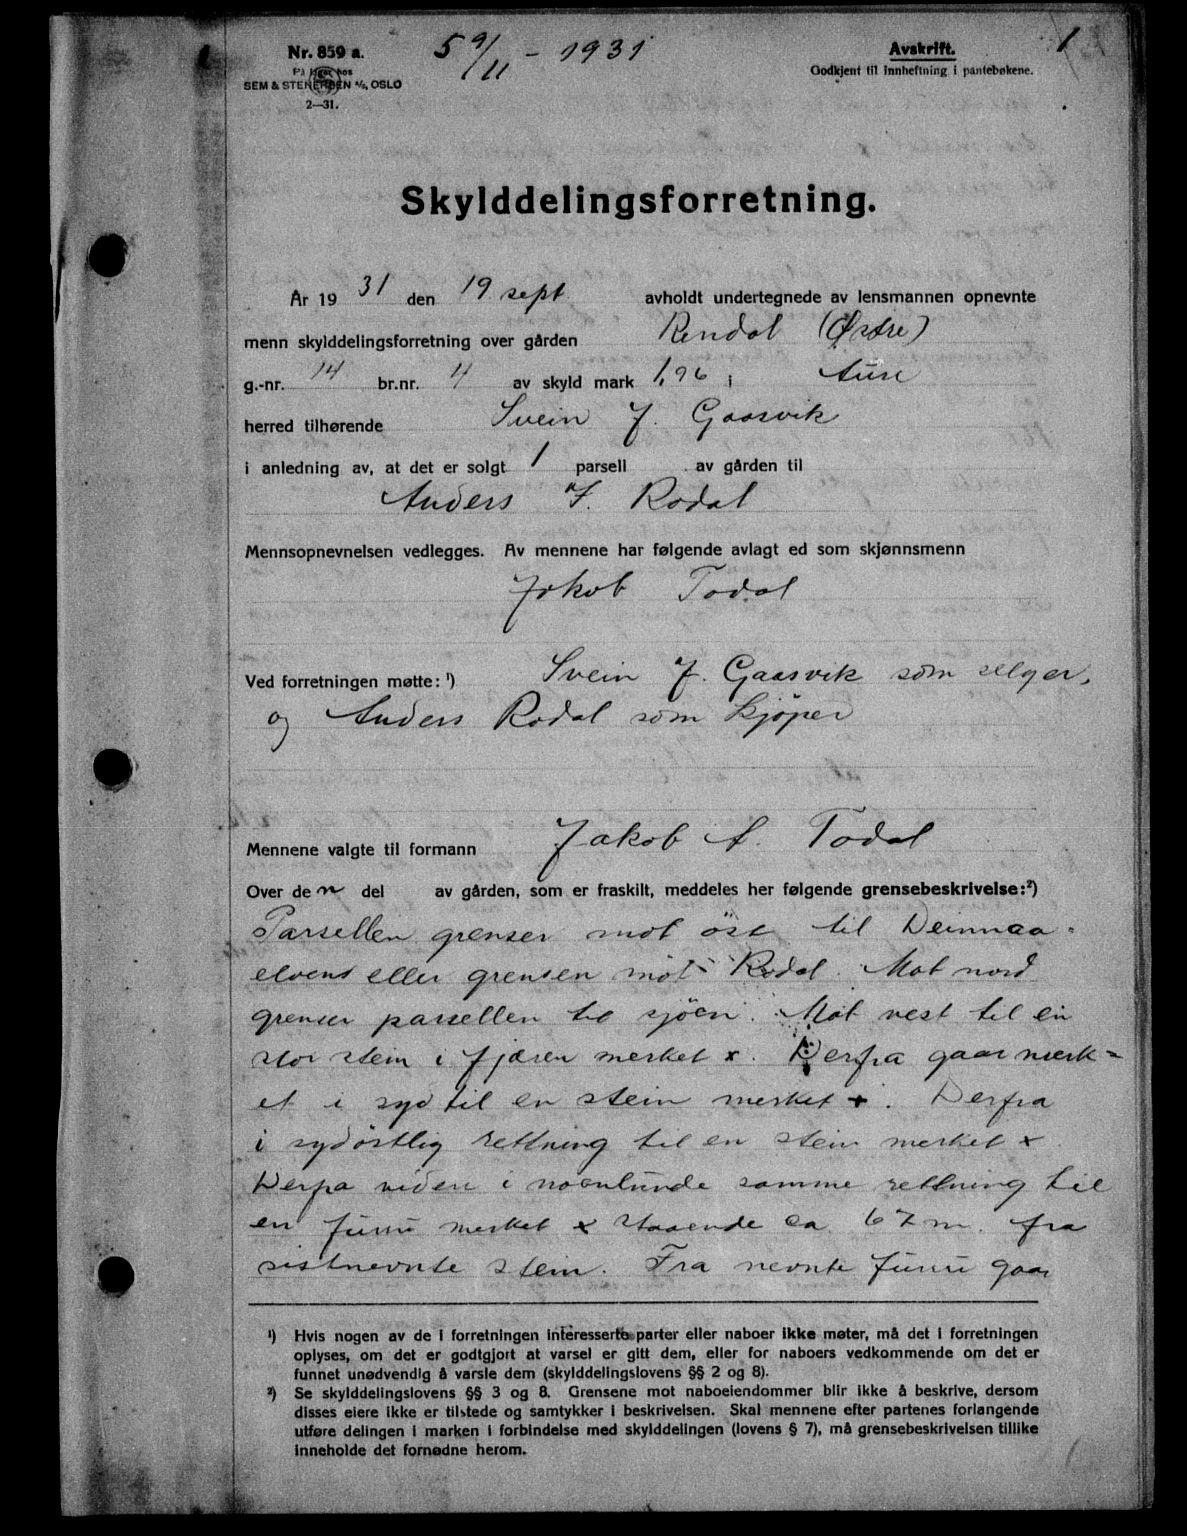 Nr. 859 a.
På lager hos
SEM & STENERSEN A/S, OSLO
2—31.
5 9/11 - 1931
Avskrift.
Godkjent til innheftning i pantebøkene.
1
Skylddelingsforretning.
År 1931 den 19 sept avholdt undertegnede av lensmannen opnevnte
menn skylddelingsforretning over gården Rendal (Østre)
g.-nr. 14 br.nr. 4 av skyld mark 1,96 i Aure
herred tilhørende Svein J. Gaasvik
i anledning av, at det er solgt 1 parsell av gården til
Anders J. Rodal
Mennsopnevnelsen vedlegges. Av mennene har følgende avlagt ed som skjønnsmenn
Jakob Todal
Ved forretningen møtte: ¹) Svein J. Gaasvik som selger,
og Anders Rodal som kjøper
Mennene valgte til formann Jakob A. Todal
Over den del av gården, som er fraskilt, meddeles her følgende grensebeskrivelse:²)
Parsellen grenser mot öst til Deinnaa-
elvens eller grensen mot Rodal. Mot nord
grenser parsellen til sjöen. Mot vest til en
stor stein i fjæren merket x. Derfra gaar merk=
et i syd til en stein merket +. Derfra
i sydöstlig rettning til en stein merket x
Derfra videre i noenlunde samme rettning til
en furu merket x staaende ca 67 m. fra
sistnevnte stein. Fra nevnte furu gaar
¹) Hvis nogen av de i forretningen interesserte parter eller naboer ikke møter, må det i forretningen
oplyses, om det er godtgjort at varsel er gitt dem, eller for naboers vedkommende om det er
funnet unødvendig å varsle dem (skylddelingslovens §§ 2 og 8).
²) Se skylddelingslovens §§ 3 og 8. Grensene mot naboeiendommer blir ikke å beskrive, dersom
disses eiere ikke er tilstede og samtykker i beskrivelsen. Skal mennene efter partenes forlangende
utføre delingen i marken i forbindelse med skylddelingen (lovens § 7), må grensebeskrivelsen tillike
inneholde det fornødne herom.